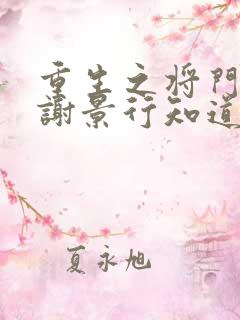 重生之将門
謝景行知道
夏永旭